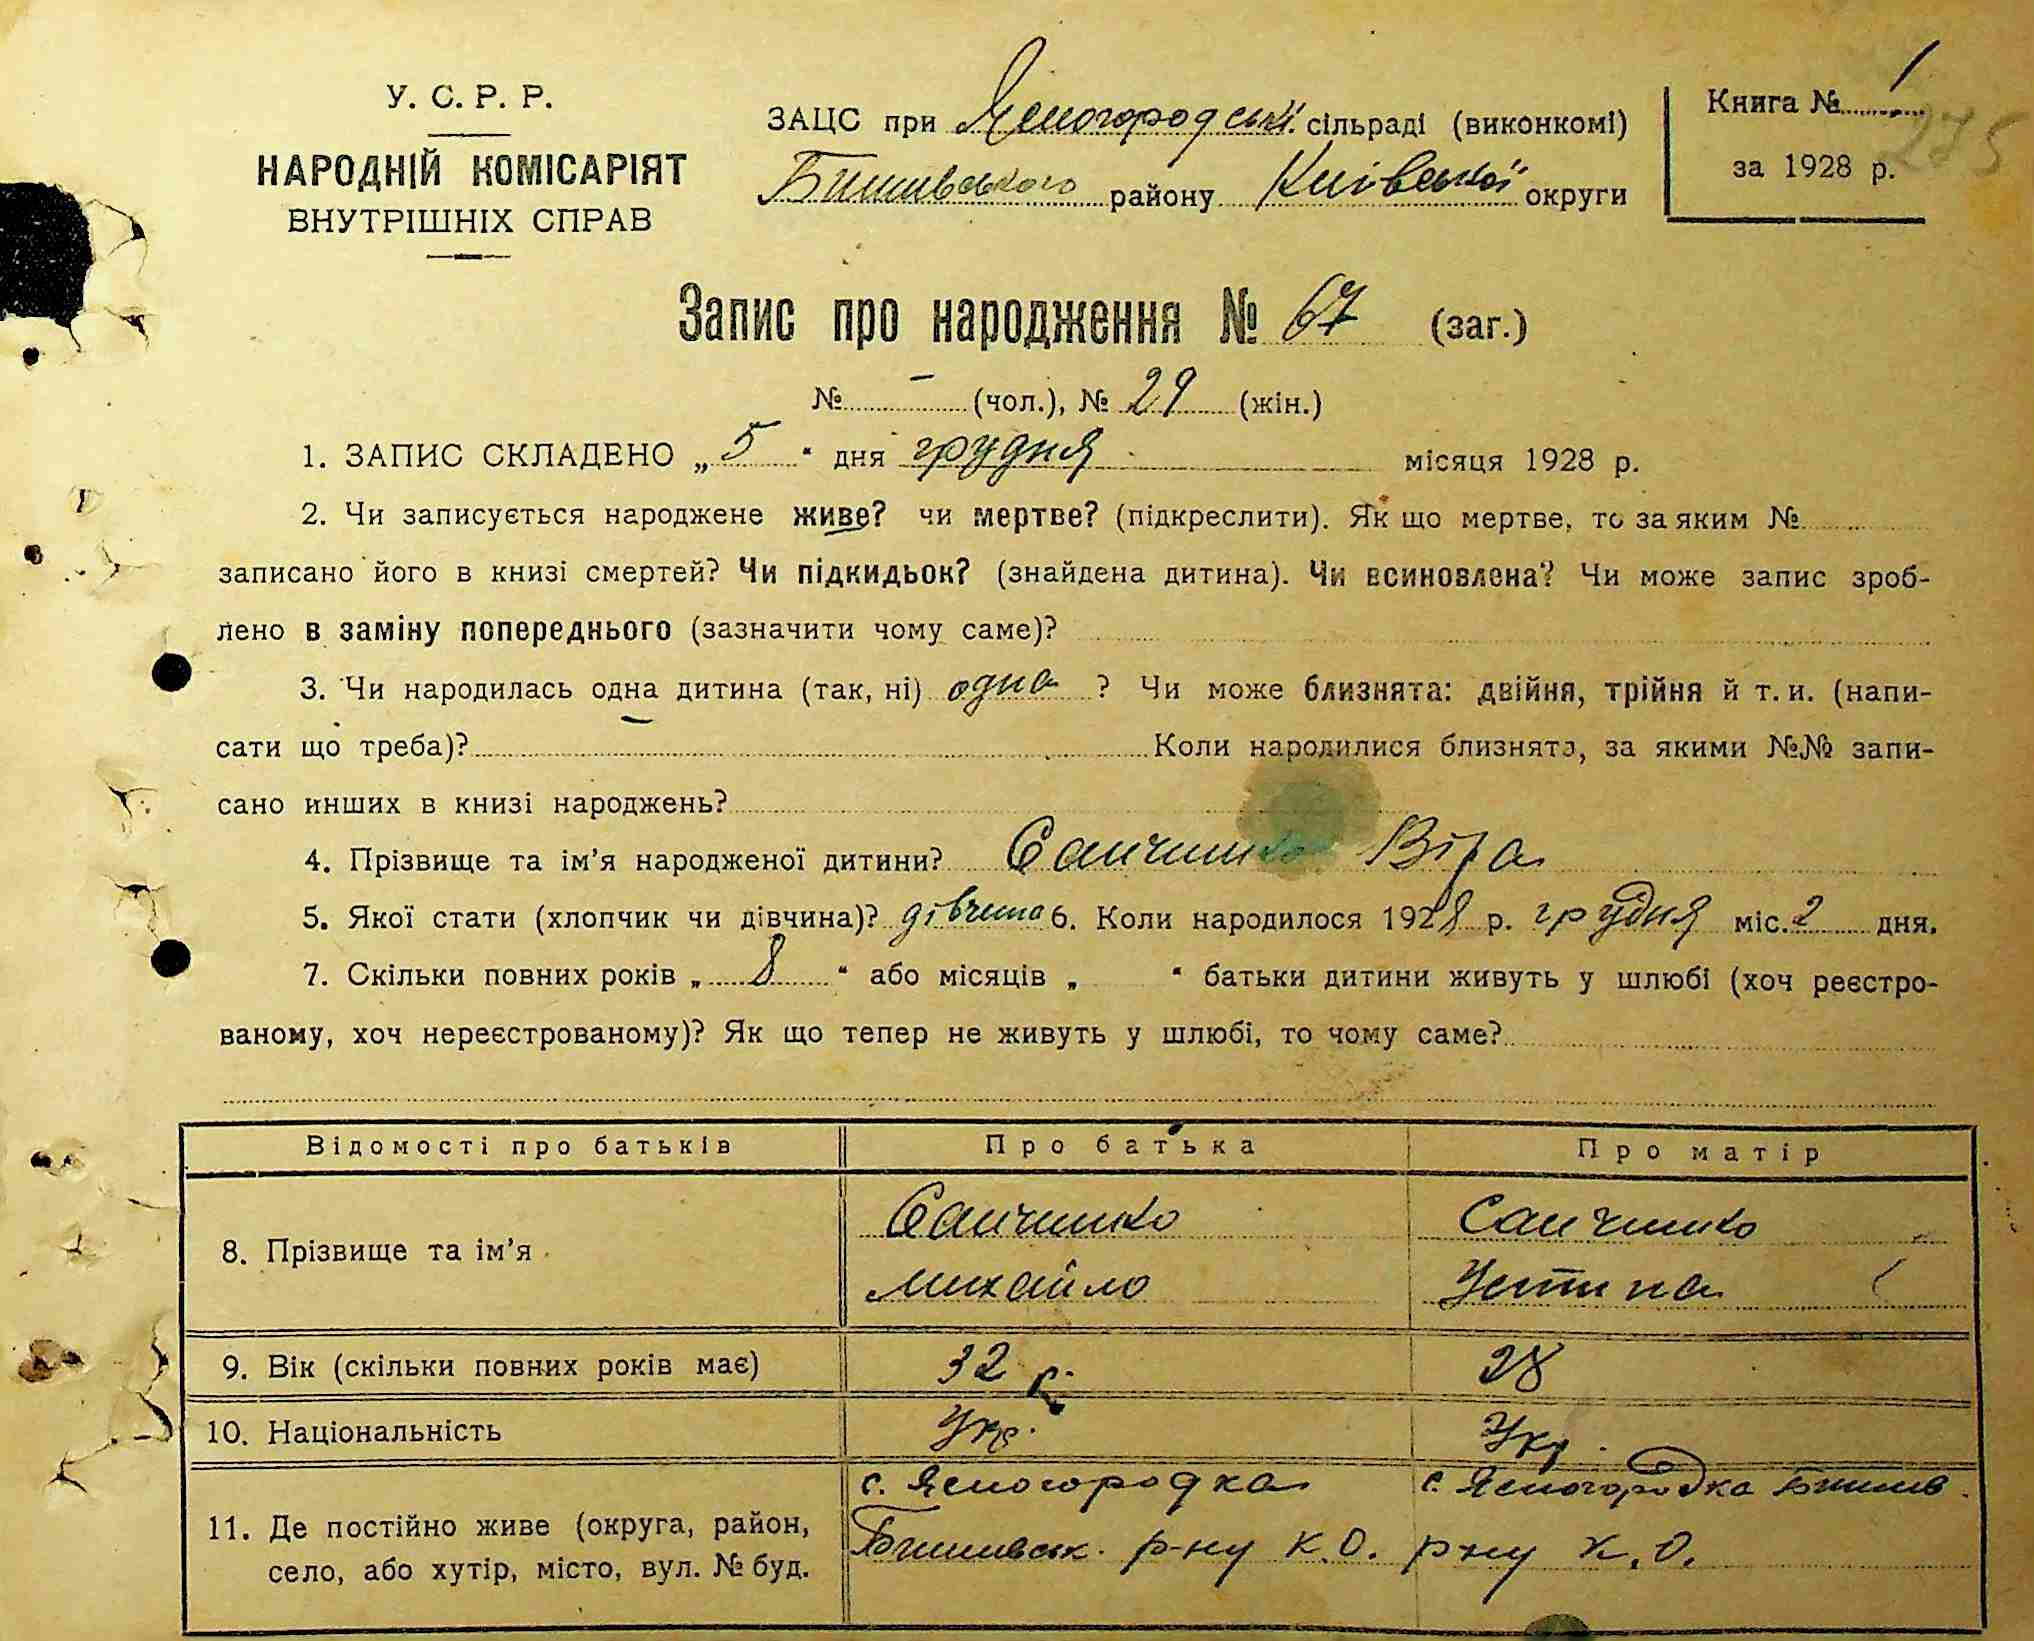 У. С. Р. Р.
НАРОДНІЙ КОМІСАРІЯТ
ВНУТРІШНІХ СПРАВ
ЗАЦС при Ясногородській сільраді (виконкомі)
Бишівського району Київської округи
Книга № 1
за 1928 р.
275
Запис про народження № 67 (заг.)
№ – (чол.), № 29 (жін.)
1. ЗАПИС СКЛАДЕНО „ 5 “ дня грудня місяця 1928 р.
2. Чи записується народжене живе? чи мертве? (підкреслити). Як що мертве, то за яким №
записано його в книзі смертей? Чи підкидьок? (знайдена дитина). Чи всиновлена? Чи може запис зроб-
лено в заміну попереднього (зазначити чому саме)?
3. Чи народилась одна дитина (так, ні) одна ? Чи може близнята: двійня, трійня й т. и. (напи-
сати що треба)? Коли народилися близнята, за якими №№ запи-
сано инших в книзі народжень?
4. Прізвище та ім’я народженої дитини? Санченко Віра
5. Якої стати (хлопчик чи дівчина)? дівчина 6. Коли народилося 1928 р. грудня міс. 2 дня.
7. Скільки повних років „ 8 “ або місяців „ “ батьки дитини живуть у шлюбі (хоч реєстро-
ваному, хоч нереєстрованому)? Як що тепер не живуть у шлюбі, то чому саме?
Відомості про батьків Про батька Про матір
8. Прізвище та ім’я
Санченко
Михайло
Санченко
Устина
9. Вік (скільки повних років має) 32 р. 28
10. Національність Укр. Укр.
11. Де постійно живе (округа, район,
село, або хутір, місто, вул. № буд.
с. Ясногородка
Бишівськ. р-ну К.О.
с. Ясногородка Бишів.
р-ну К.О.